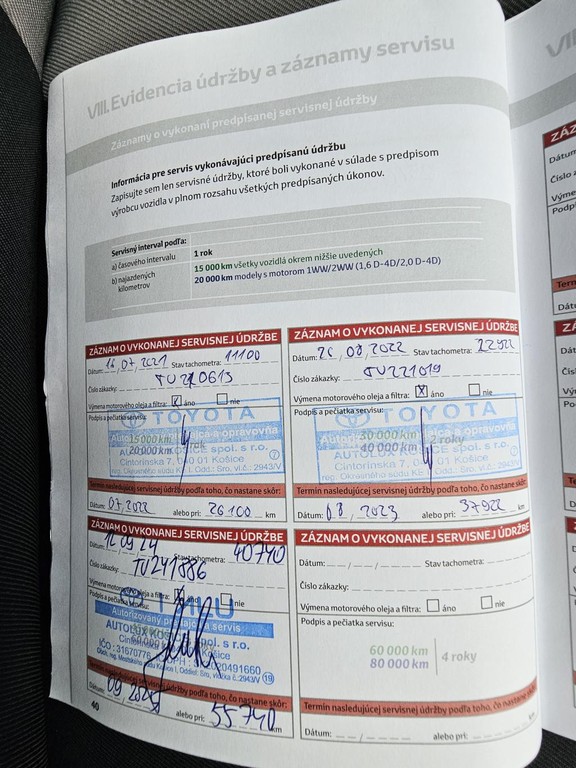 VIII. Evidencia údržby a záznamy servisu
Záznamy o vykonaní predpísanej servisnej údržby
Informácia pre servis vykonávajúci predpísanú údržbu
Zapisujte sem len servisné údržby, ktoré boli vykonané v súlade s predpisom
výrobcu vozidla v plnom rozsahu všetkých predpísaných úkonov.
Servisný interval podľa:
a) časového intervalu 1 rok
b) najazdených kilometrov
15 000 km všetky vozidlá okrem nižšie uvedených
20 000 km modely s motorom 1WW/2WW (1,6 D-4D/2,0 D-4D)
ZÁZNAM O VYKONANEJ SERVISNEJ ÚDRŽBE
Dátum: 16,07,2021 Stav tachometra: 11100
Číslo zákazky: TU210613
Výmena motorového oleja a filtra: áno nie
Podpis a pečiatka servisu:
TOYOTA
15 000 km
20 000 km
Cintorínska 7, 040 01 Košice
Termín nasledujúcej servisnej údržby podľa toho, čo nastane skôr:
Dátum: 07,2022 alebo pri: 26100 km
ZÁZNAM O VYKONANEJ SERVISNEJ ÚDRŽBE
Dátum: 26,08,2022 Stav tachometra: 22922
Číslo zákazky: TU221019
Výmena motorového oleja a filtra: X áno nie
Podpis a pečiatka servisu:
TOYOTA
30 000 km
40 000 km
2 roky
Cintorínska 7, 040 01 Košice
Termín nasledujúcej servisnej údržby podľa toho, čo nastane skôr:
Dátum: 08, 2023 alebo pri: 37922 km
ZÁZNAM O VYKONANEJ SERVISNEJ ÚDRŽBE
12 09 24 Stav tachometra: 40740
Číslo zákazky: TU241886
Výmena motorového oleja a filtra: áno nie
Podpis a pečiatka servisu:
Autorizovaný predajca a servis
IČO: 31670776
Termín nasledujúcej servisnej údržby podľa toho, čo nastane skôr:
Dátum: alebo pri: 55740 km
ZÁZNAM O VYKONANEJ SERVISNEJ ÚDRŽBE
Dátum: Stav tachometra:
Číslo zákazky:
Výmena motorového oleja a filtra: áno nie
Podpis a pečiatka servisu:
60 000 km
80 000 km
4 roky
Termín nasledujúcej servisnej údržby podľa toho, čo nastane skôr:
Dátum: alebo pri: km
40